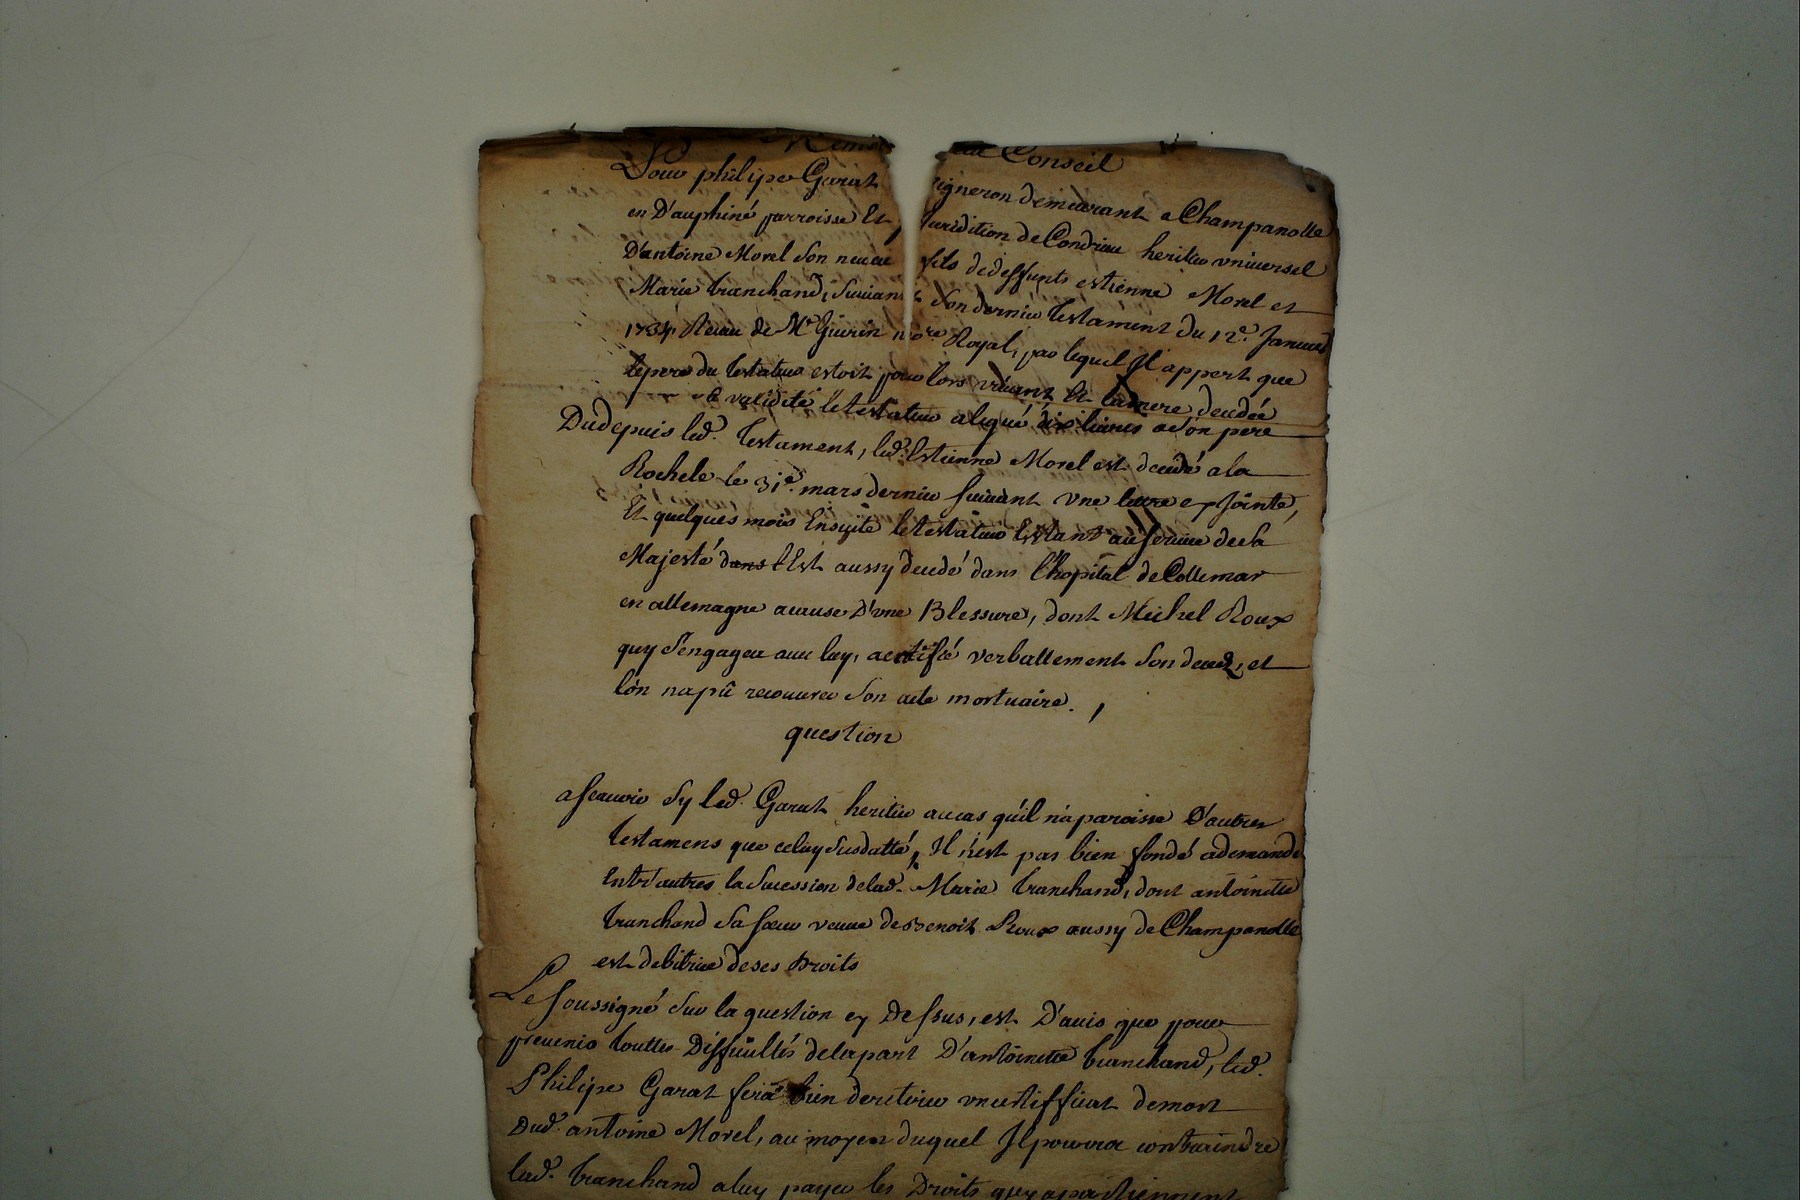 au Conseil
Pour philipe Garat vigneron demeurant a Champanolle
en D'auphiné parroisse Et Juridition de Condrieu heritier vniversel
D'antoine Morel Son neveu fils de deffunts estienne Morel et
Marie tranchand, Suivant Son dernier testament du 12e. Janvier
1734 Receu de Me Guerin nore Royal, par lequel Il appert que
le pere du testateur estoit pour lors vivant Et la mere decedée
validité le testateur a legué dix livres a Son pere
Dudepuis led. testament, led. Estienne Morel est decedé a la
Rochele le 31e. mars dernier suivant vne lettre cy Jointe,
Et quelques mois Ensuite le testateur Estant au service de sa
Majesté dans Est aussy decedé dans l'hopital de Collemar
en allemagne acause D'vne Blessure, dont Michel Roux
quy S'engagea avec luy, acertifié verballement Son deces, et
l'on na pû recouvrer Son acte mortuaire.
question
a scavoir Sy led. Garat heritier au cas qu'il n'aparoisse D'autres
testamens que celuy Susdatté, Il n'est pas bien fondé a demander
Entr'autres la Sucession de lad. Marie tranchand, dont antoinette
tranchand Sa soeur veuve de Benoit Roux aussy de Champanolle
est debitrice de ses Droits
Le soussigné Sur la question cy Dessus, est D'avis que pour
prevenir touttes Difficultés de la part D'antoinette tranchand, led.
Philipe Garat fera bien de retirer vn certifficat de mort
Dud. antoine Morel, au moyen duquel Il pourra contraindre
lad. tranchand a luy payer les Droits quy apartiennent